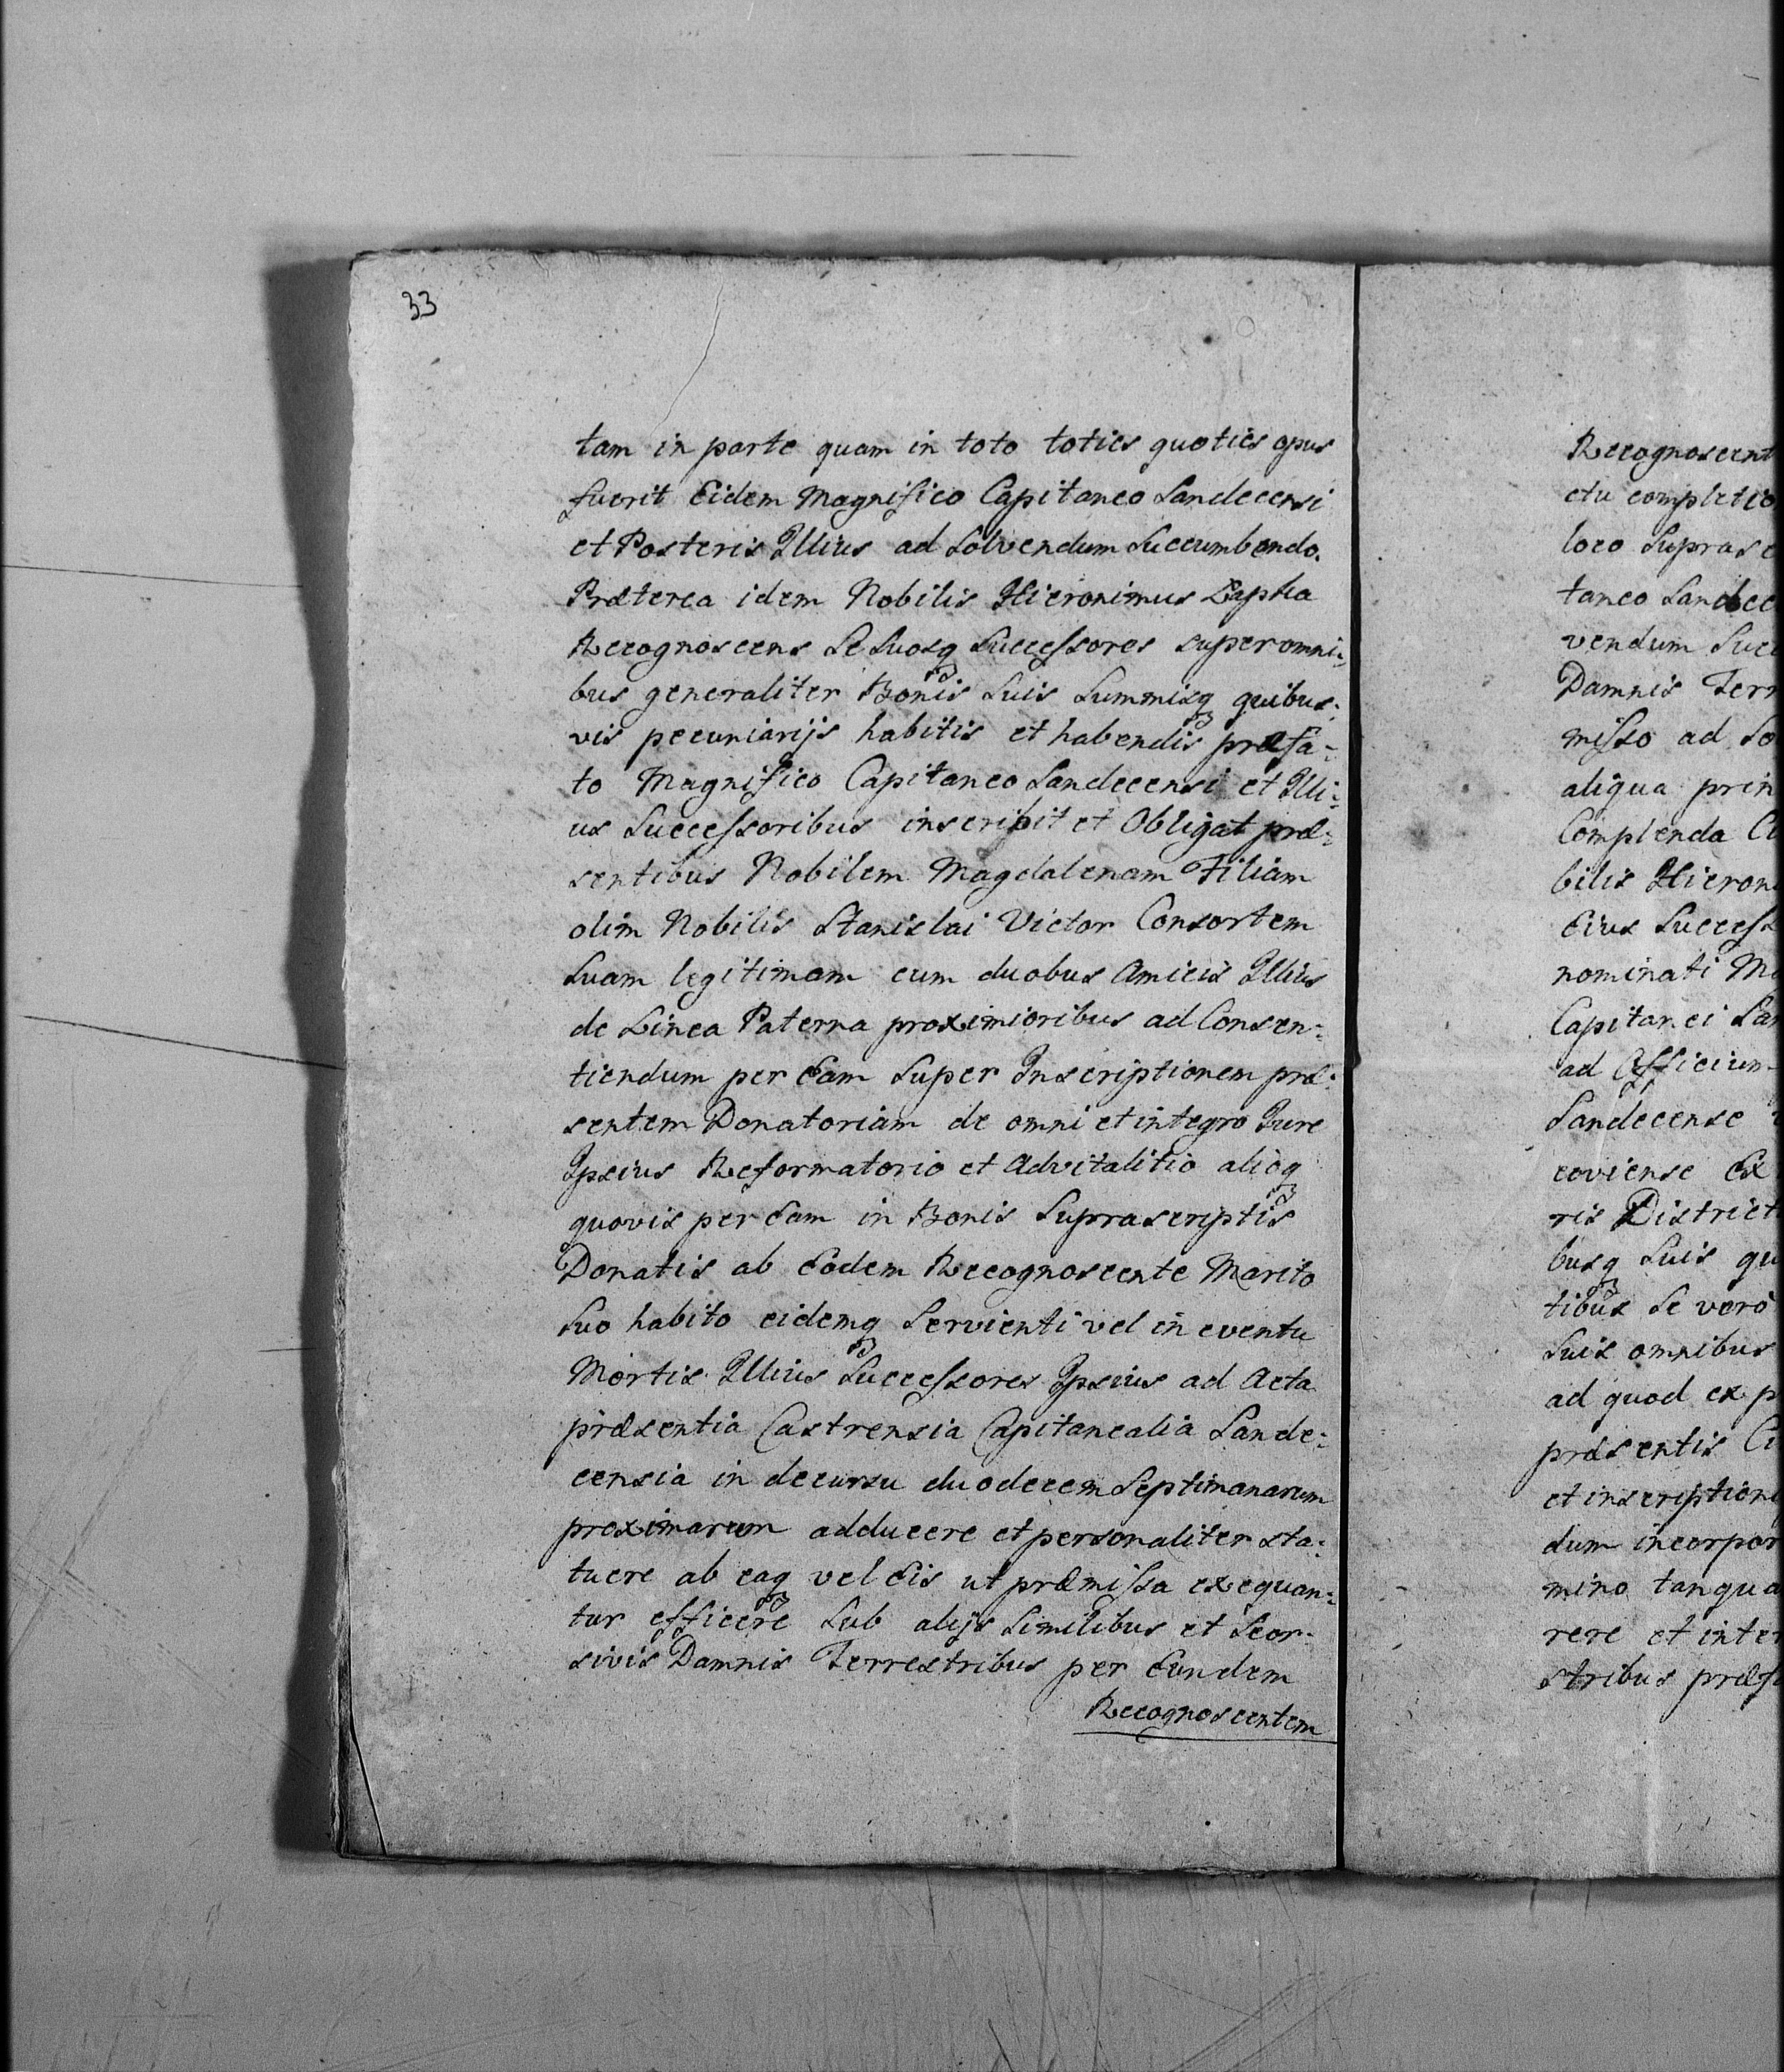 33
tam in parte quam in toto toties quoties opus
fuerit Eidem Magnifico Capitaneo Sandecensi
et Posteris Illius ad Solvendum Succumbendo.
Præterea idem Nobilis Hieronimus Łapka
Recognoscens Se Suosq Successores super omni:
bus generaliter Bonis Suis Summisq quibus:
vis pecuniarijs habitis et habendis præfa:
to Magnifico Capitaneo Sandecensi et Illi:
us Successoribus inscribit et Obligat præ:
sentibus Nobilem Magdalenam Filiam
olim Nobilis Stanislai Victor Consortem
Suam legitimam cum duobus Amicis Illius
de Linea Paterna proximioribus ad Consen:
tiendum per Eam Super Inscriptionem præ:
sentem Donatoriam de omni et integro Jure
Ipsius Reformatorio et Advitalitio alioq
quovis per Eam in Bonis Suprascriptis
Donatis ab Eodem Recognoscente Marito
Suo habito eidemq Servienti vel in eventu
Mortis Illius Successores Ipsius ad Acta
præsentia Castrensia Capitanealia Sande:
censia in decursu duodecem Septimanarum
proximarum adducere et personaliter sta:
tuere ab eaq vel Eis ut præmissa exequan:
tur efficere Sub alijs Similibus et Seor:
sivis Damnis Terrestribus per Eundem
Recognoscentem
Recognoscent
ctu completio
loco Suprasc
taneo Sandec
vendum Succ
Damnis Terr
misso ad So
aliqua prin
Complenda Ci
bilis Hieron
Eius Success
nominati Ma
Capitanei San
ad Officium
Sandecense
coviense Ex
ris District
busq Suis qu
tibus Se vero
Suis omnibus
ad quod ex p
præsentis Ci
et inscription
dum incorpor
mino tanqua
rere et inter
stribus præf